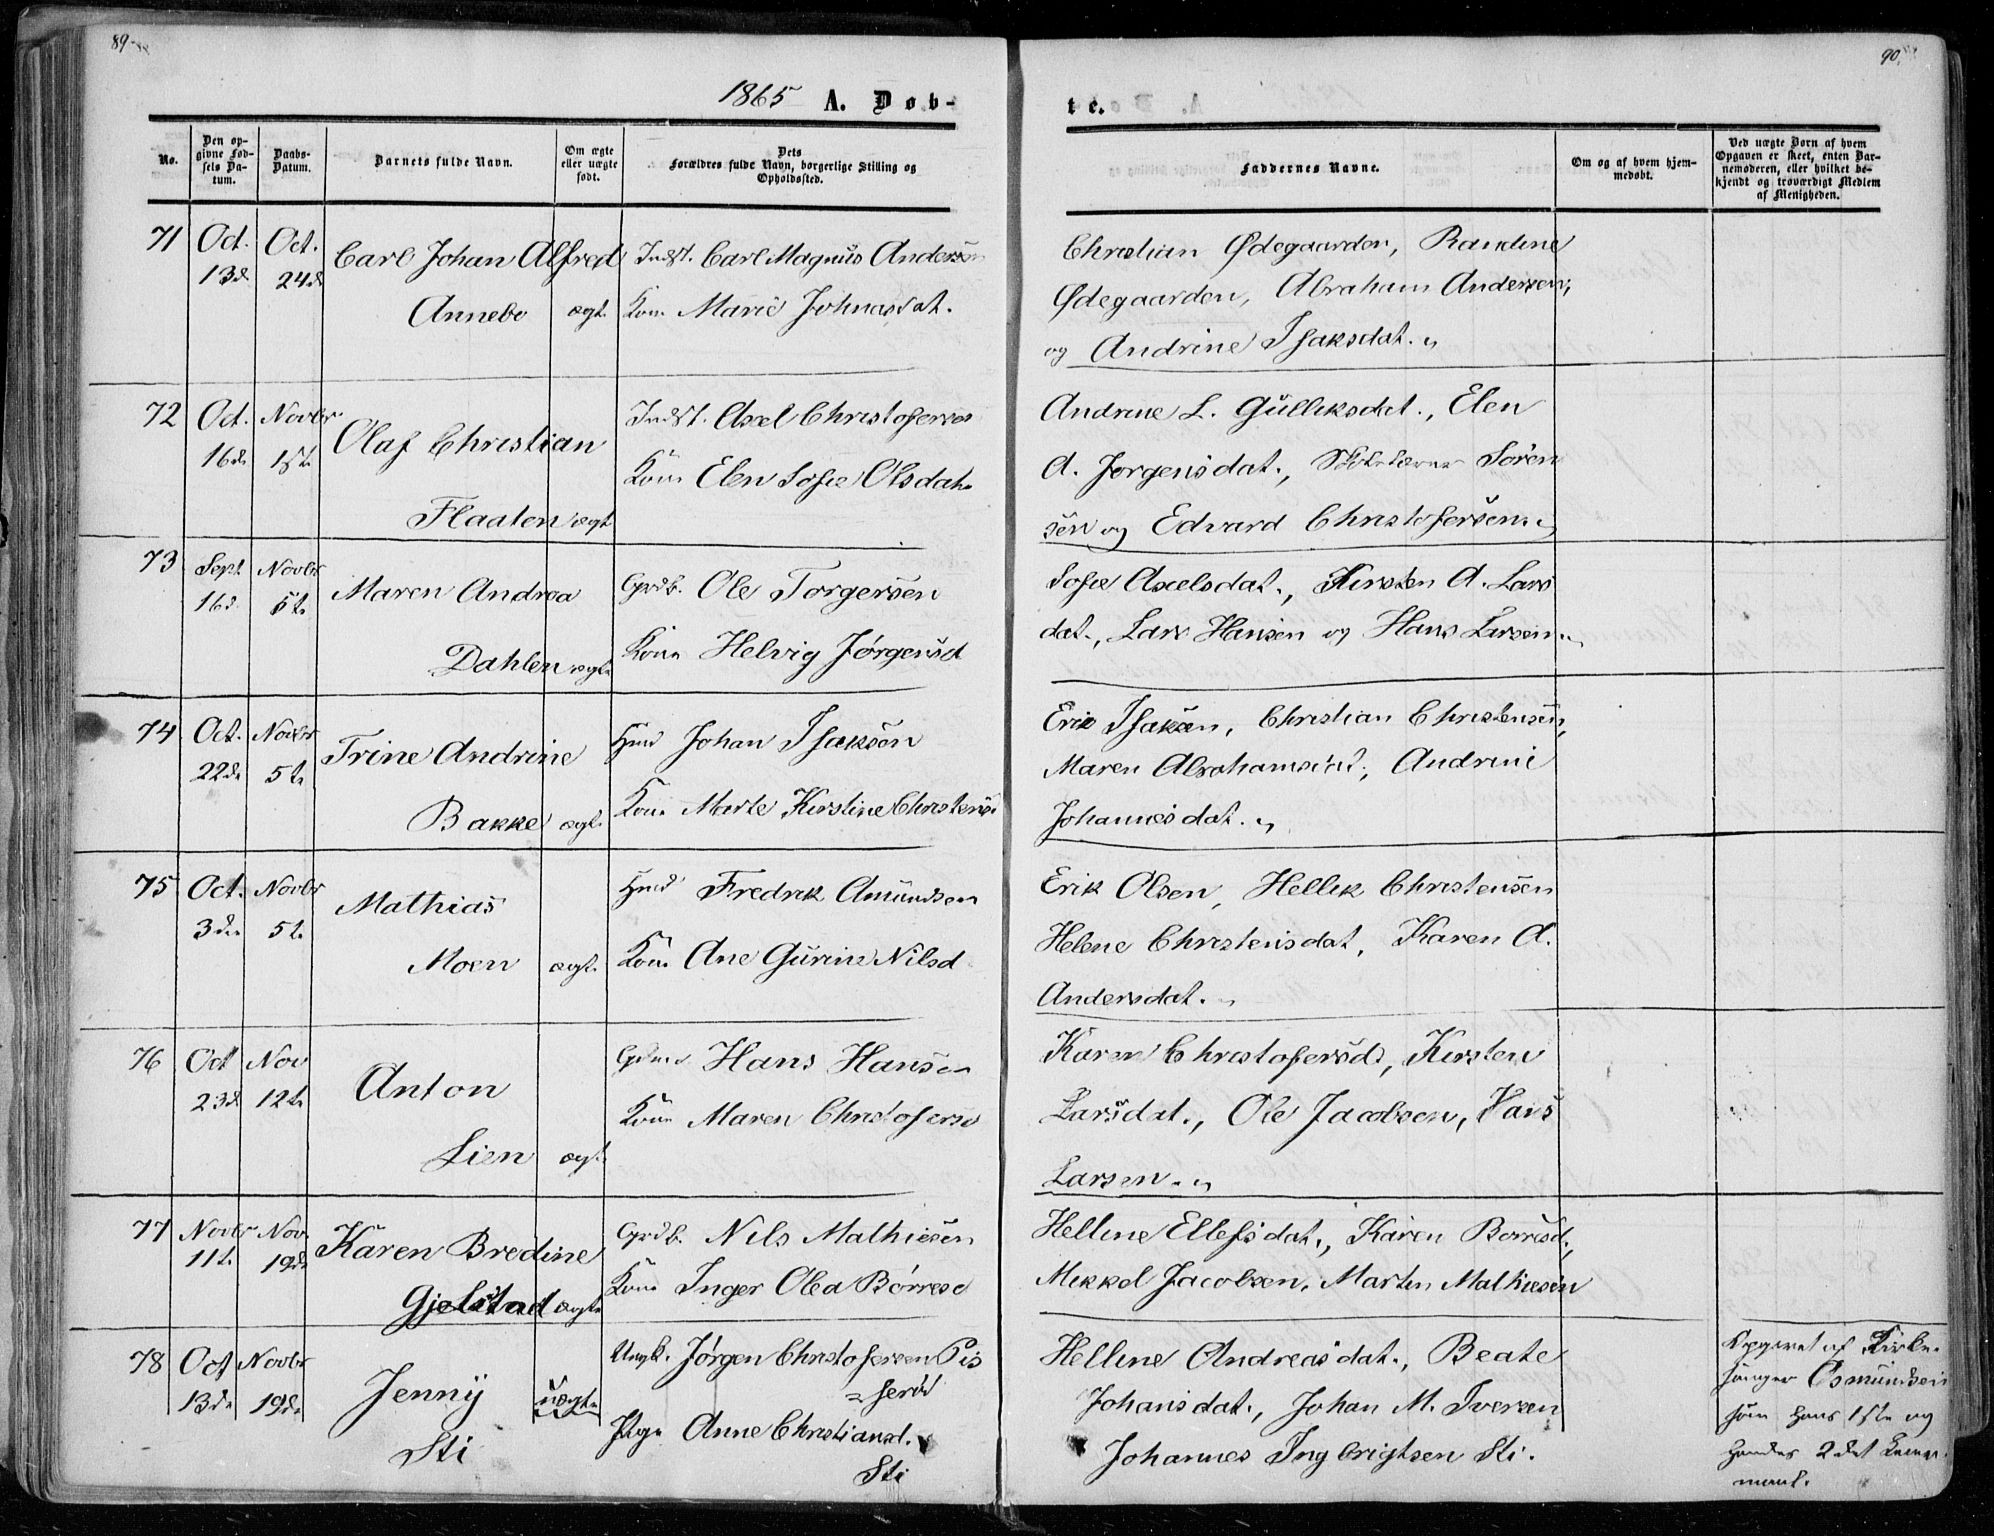 89
1865 A. Døb-
No.
Den op-
givne Fød-
sels Da-
tum.
Daabs-
Datum.
Barnets fulde Navn.
Om ægte
eller uægte
født.
Dets
Forældres fulde Navn, borgerlige Stilling og
Opholdssted.
71 Oct. Oct. Carl Johan Alfred Indst. Carl Magnus Andersen
13d 24d Annebo ægt. Kone Marie Johnasdat.
72 Oct. Novbr Olaf Christian Indst. Axel Christofersen
16de 1ste Kone Elen Sofie Olsdat.
Flaaten ægt
73 Sept. Novbr Maren Andrea Grdb. Ole Torgersen
16d. 5te
Dahlen ægte Kone Helvig Jørgensd
74 Oct. Novbr Trine Andrine Hmd Johan Isaksen
22de 5te Bakke ægt. Kone Marte Kirstine Christensd
75 Oct. Novbr Mathias Hmd Fredrik Amundsen
3de 5te Moen ægt. Kone Ane Gurine Nilsd
76 Oct Nov Anton Gdmd Hans Hansen
23d 12te Kone Maren Christofersd
Lien ægt.
77 Novbr Nov. Karen Bredine Grdb. Nils Mathiesen
11te 19de Gjelstad ægte Kone Inger Olea Børresd
78 Oct Novbr Jenny uægte Ungk. Jørgen Christofersen Pis
13de 19de =serød
Sti Pige Anne Christiansd.
Sti
90.
te.
Faddernes Navne.
Om og af hvem hjem-
medøbt.
Ved uægte Børn af hvem
Opgaven er skeet, enten Bar-
nemoderen, eller hvilket be-
kjendt og troværdigt Medlem
af Menigheden.
Christian Ødegaarden, Randine
Ødegaarden, Abraham Andersen,
og Andrine Isaksdat.
Andrine L. Gulliksdat., Elen
A. Jørgensdat., Sören
sen og Edvard Christofersen.
Sofie Axelsdat., Kirsten A. Lars
dat., Lars Hansen og Hans Larsen.
Erik Isaksen, Christian Christensen,
Maren Abrahamsdat., Andrine
Johannesdat.
Erik Olsen, Hellik Christensen
Helene Christensdat, Karen A.
Andersdat.
Karen Christofersd., Kirsten
Larsdat., Ole Jacobsen, Hans
Larsen.
Helline Ellefsdat., Karen Borresd.,
Mikkel Jacobsen, Martin Mathiesen
Helline Andreasdat., Beate
Johansdat., Johan M. Iversen
Johannes Ingbrigtsen Sti.
Opgivet af Kirke-
sanger Osmundsen
som hans 1ste og
hendes 2det Leier-
maal.